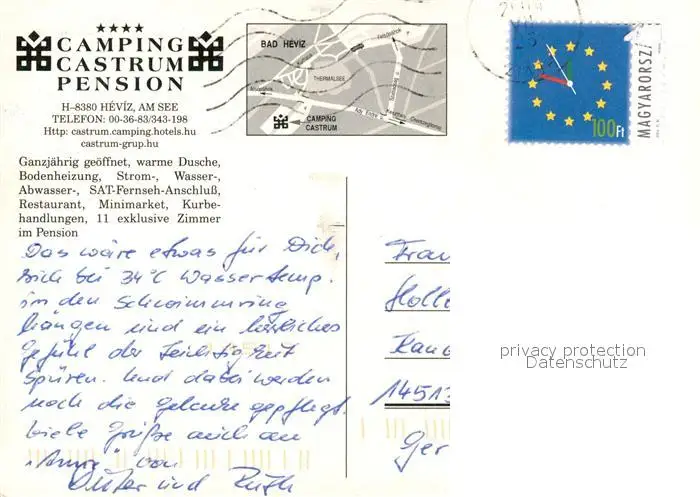 ★★★★
CAMPING
CASTRUM
PENSION
H–8380 HÉVÍZ, AM SEE
TELEFON: 00-36-83/343-198
Http: castrum.camping.hotels.hu
castrum-grup.hu
Ganzjährig geöffnet, warme Dusche,
Bodenheizung, Strom-, Wasser-,
Abwasser-, SAT-Fernseh-Anschluß,
Restaurant, Minimarket, Kurbe-
handlungen, 11 exklusive Zimmer
im Pension
BAD HÉVÍZ
THERMALSEE
CAMPING
CASTRUM
100Ft
MAGYARORSZ
Das wäre etwas für Dich,
sich bei 34°C Wassertemp.
in den Schwimmring
hängen und ein herrliches
Gefühl der Leichtigkeit
spüren. Und dabei werden
noch die Gelenke gepflegt.
Viele Grüße auch an
von
Dieter und Ruth
Frau
Holl
14513
Ger
privacy protection
Datenschutz